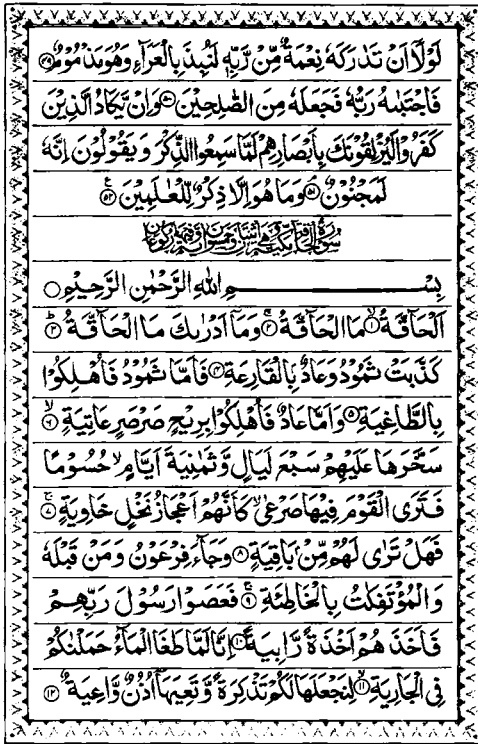 لَوْلَاۤ اَنْ تَدٰرَكَهٗ نِعْمَةٌ مِّنْ رَّبِّهٖ لَنُبِذَ بِالْعَرَآءِ وَهُوَ مَذْمُوْمٌ ﴿۴۹﴾
فَاجْتَبٰهُ رَبُّهٗ فَجَعَلَهٗ مِنَ الصّٰلِحِيْنَ ﴿۵۰﴾ وَاِنْ يَّكَادُ الَّذِيْنَ
كَفَرُوْا لَيُزْلِقُوْنَكَ بِاَبْصَارِهِمْ لَمَّا سَمِعُوا الذِّكْرَ وَيَقُوْلُوْنَ اِنَّهٗ
لَمَجْنُوْنٌ ﴿۵۱﴾ وَمَا هُوَ اِلَّا ذِكْرٌ لِّلْعٰلَمِيْنَ ﴿۵۲﴾
بِسْمِ اللّٰهِ الرَّحْمٰنِ الرَّحِيْمِ
اَلْحَآقَّةُ ﴿۱﴾ مَا الْحَآقَّةُ ﴿۲﴾ وَمَاۤ اَدْرٰىكَ مَا الْحَآقَّةُ ﴿۳﴾
كَذَّبَتْ ثَمُوْدُ وَعَادٌۢ بِالْقَارِعَةِ ﴿۴﴾ فَاَمَّا ثَمُوْدُ فَاُهْلِكُوْا
بِالطَّاغِيَةِ ﴿۵﴾ وَاَمَّا عَادٌ فَاُهْلِكُوْا بِرِيْحٍ صَرْصَرٍ عَاتِيَةٍ ﴿۶﴾
سَخَّرَهَا عَلَيْهِمْ سَبْعَ لَيَالٍ وَّثَمٰنِيَةَ اَيَّامٍ حُسُوْمًا
فَتَرَى الْقَوْمَ فِيْهَا صَرْعٰى كَاَنَّهُمْ اَعْجَازُ نَخْلٍ خَاوِيَةٍ ﴿۷﴾
فَهَلْ تَرٰى لَهُمْ مِّنْۢ بَاقِيَةٍ ﴿۸﴾ وَجَآءَ فِرْعَوْنُ وَمَنْ قَبْلَهٗ
وَالْمُؤْتَفِكٰتُ بِالْخَاطِئَةِ ﴿۹﴾ فَعَصَوْا رَسُوْلَ رَبِّهِمْ
فَاَخَذَهُمْ اَخْذَةً رَّابِيَةً ﴿۱۰﴾ اِنَّا لَمَّا طَغَا الْمَآءُ حَمَلْنٰكُمْ
فِى الْجَارِيَةِ ﴿۱۱﴾ لِنَجْعَلَهَا لَكُمْ تَذْكِرَةً وَّتَعِيَهَاۤ اُذُنٌ وَّاعِيَةٌ ﴿۱۲﴾